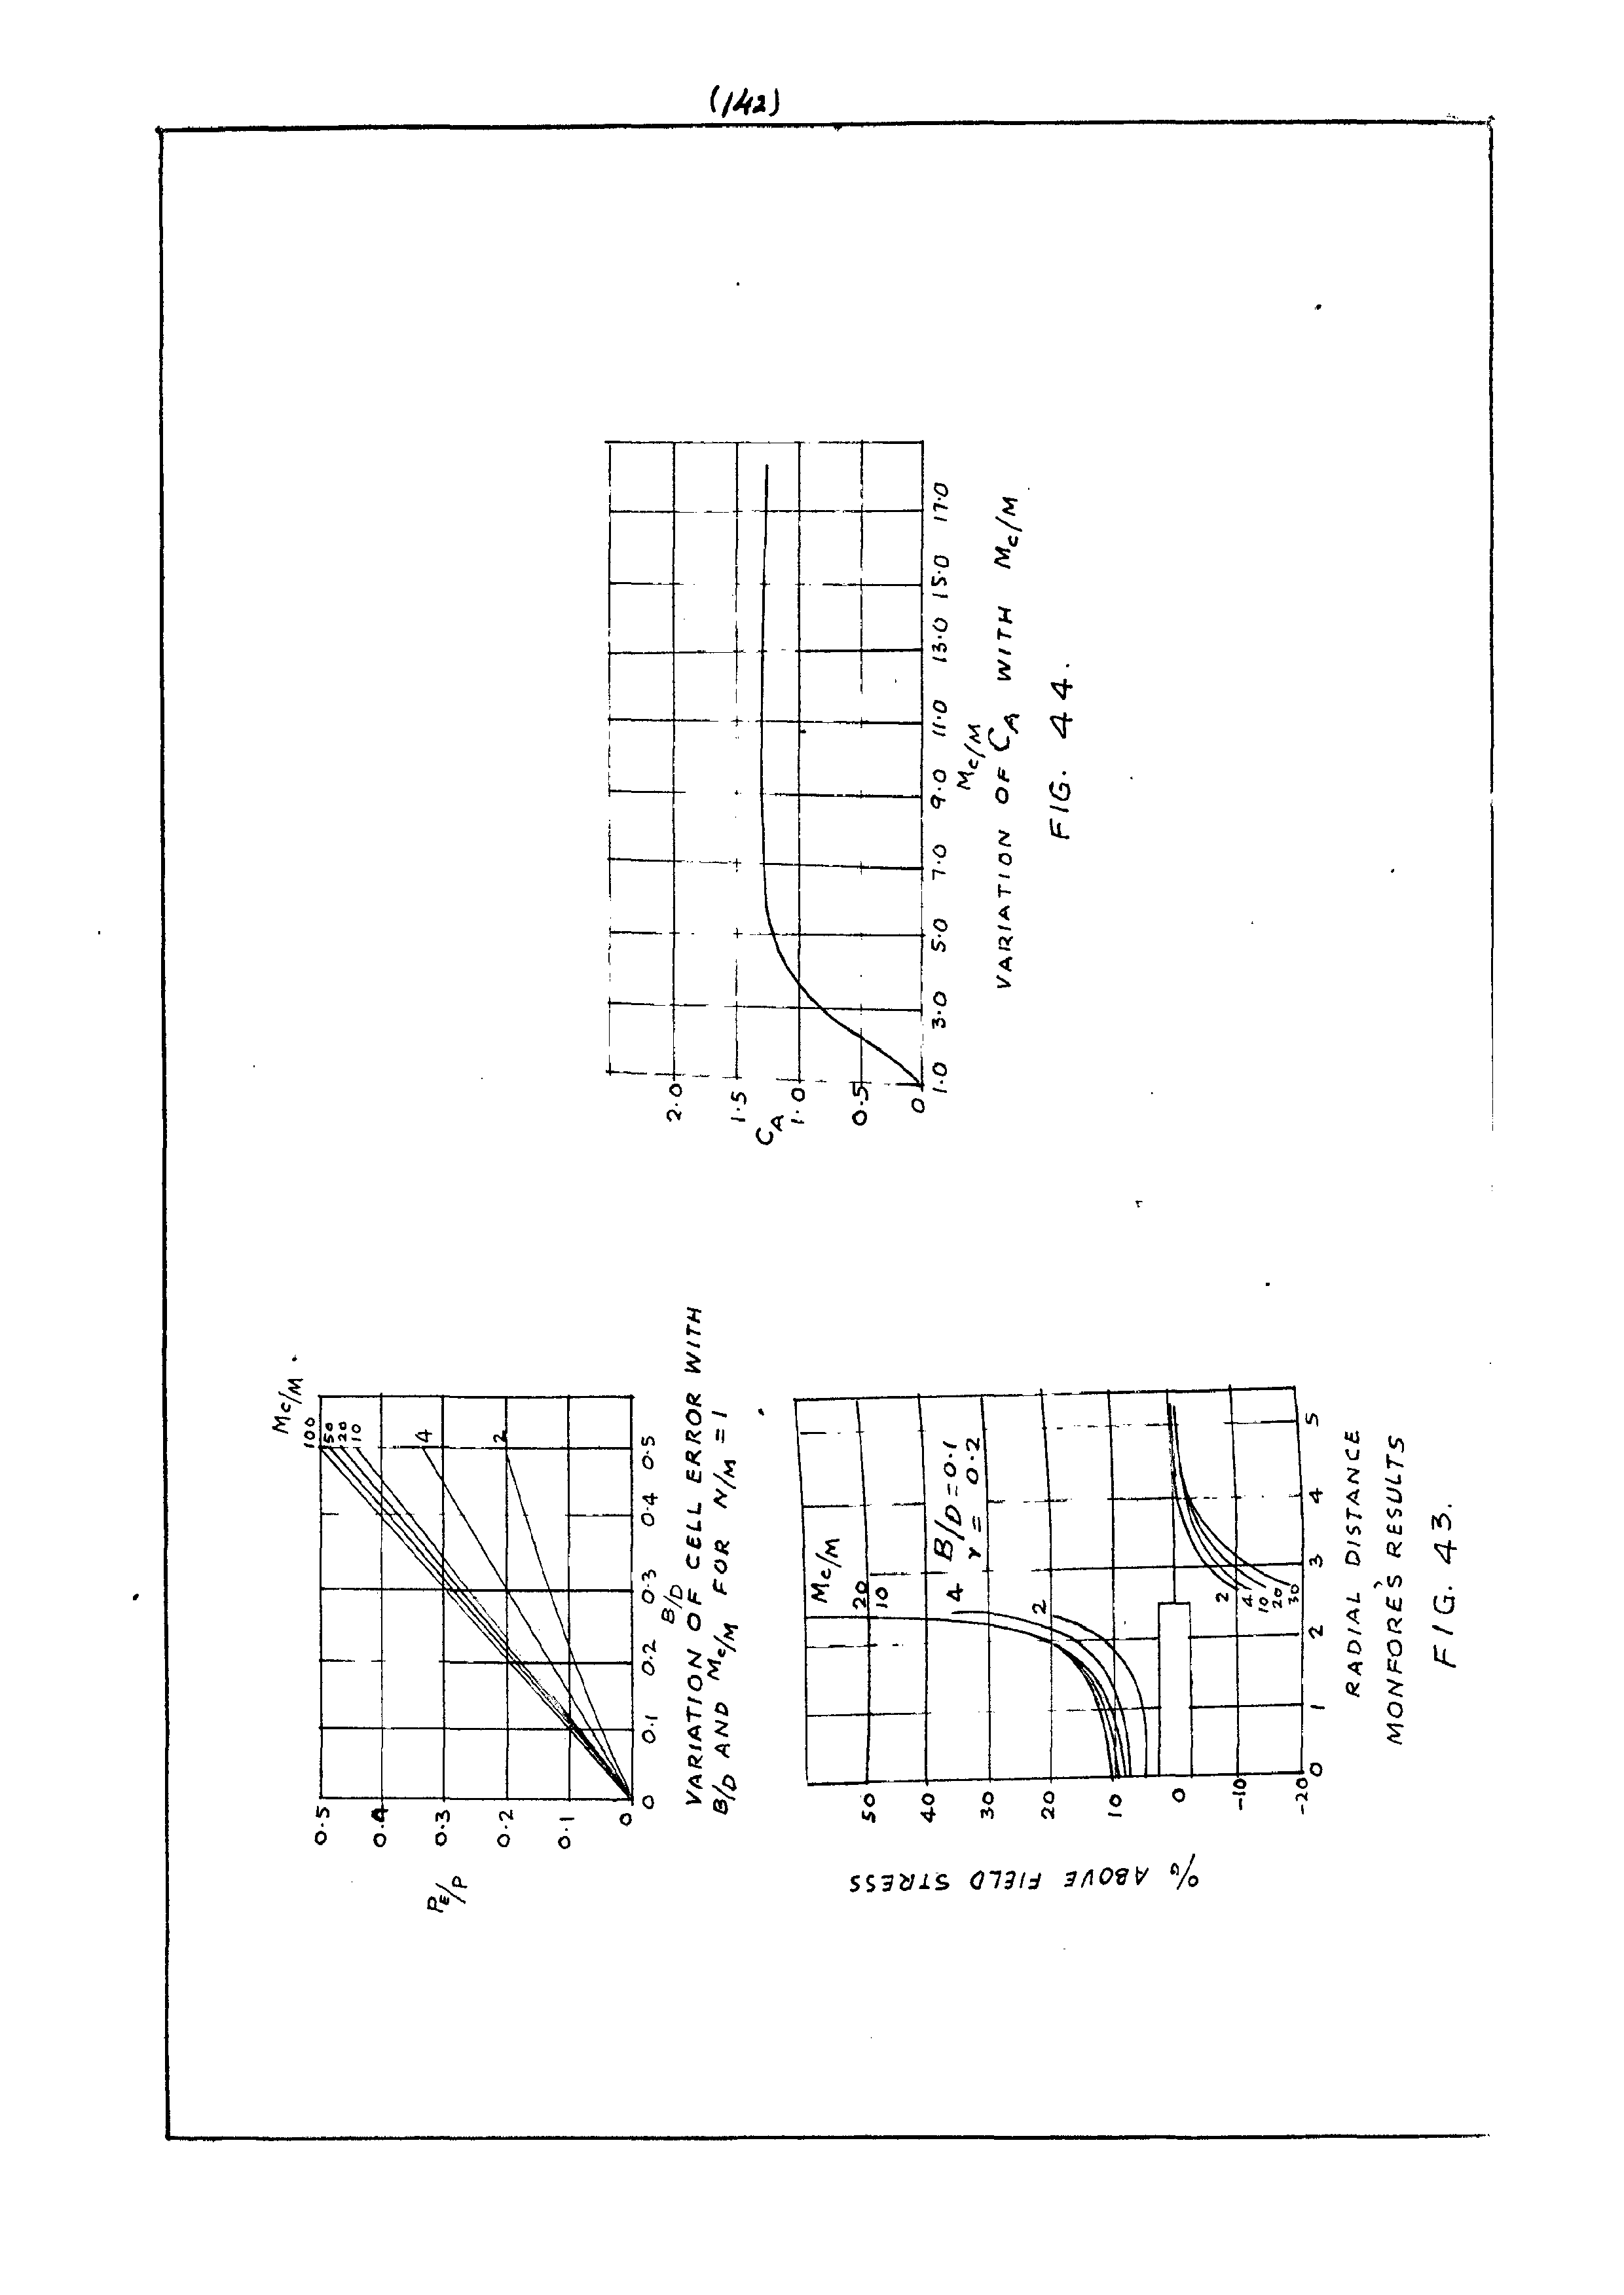 (142)
Mc/M.
100
50
20
10
4
2
0.5
0.4
0.3
0.2
0.1
0
PE/P
0 0.1 0.2 0.3 0.4 0.5
B/D
VARIATION OF CELL ERROR WITH
B/D AND Mc/M FOR N/M = 1
Mc/M
20
10
4
2
B/D = 0.1
γ = 0.2
50
40
30
20
10
0
-10
-20
% ABOVE FIELD STRESS
2
4
10
20
30
0 1 2 3 4 5
RADIAL DISTANCE
MONFORE'S RESULTS
FIG. 43.
2.0
1.5
CA
1.0
0.5
0
1.0 3.0 5.0 7.0 9.0 11.0 13.0 15.0 17.0
Mc/M
VARIATION OF CA WITH Mc/M
FIG. 44.